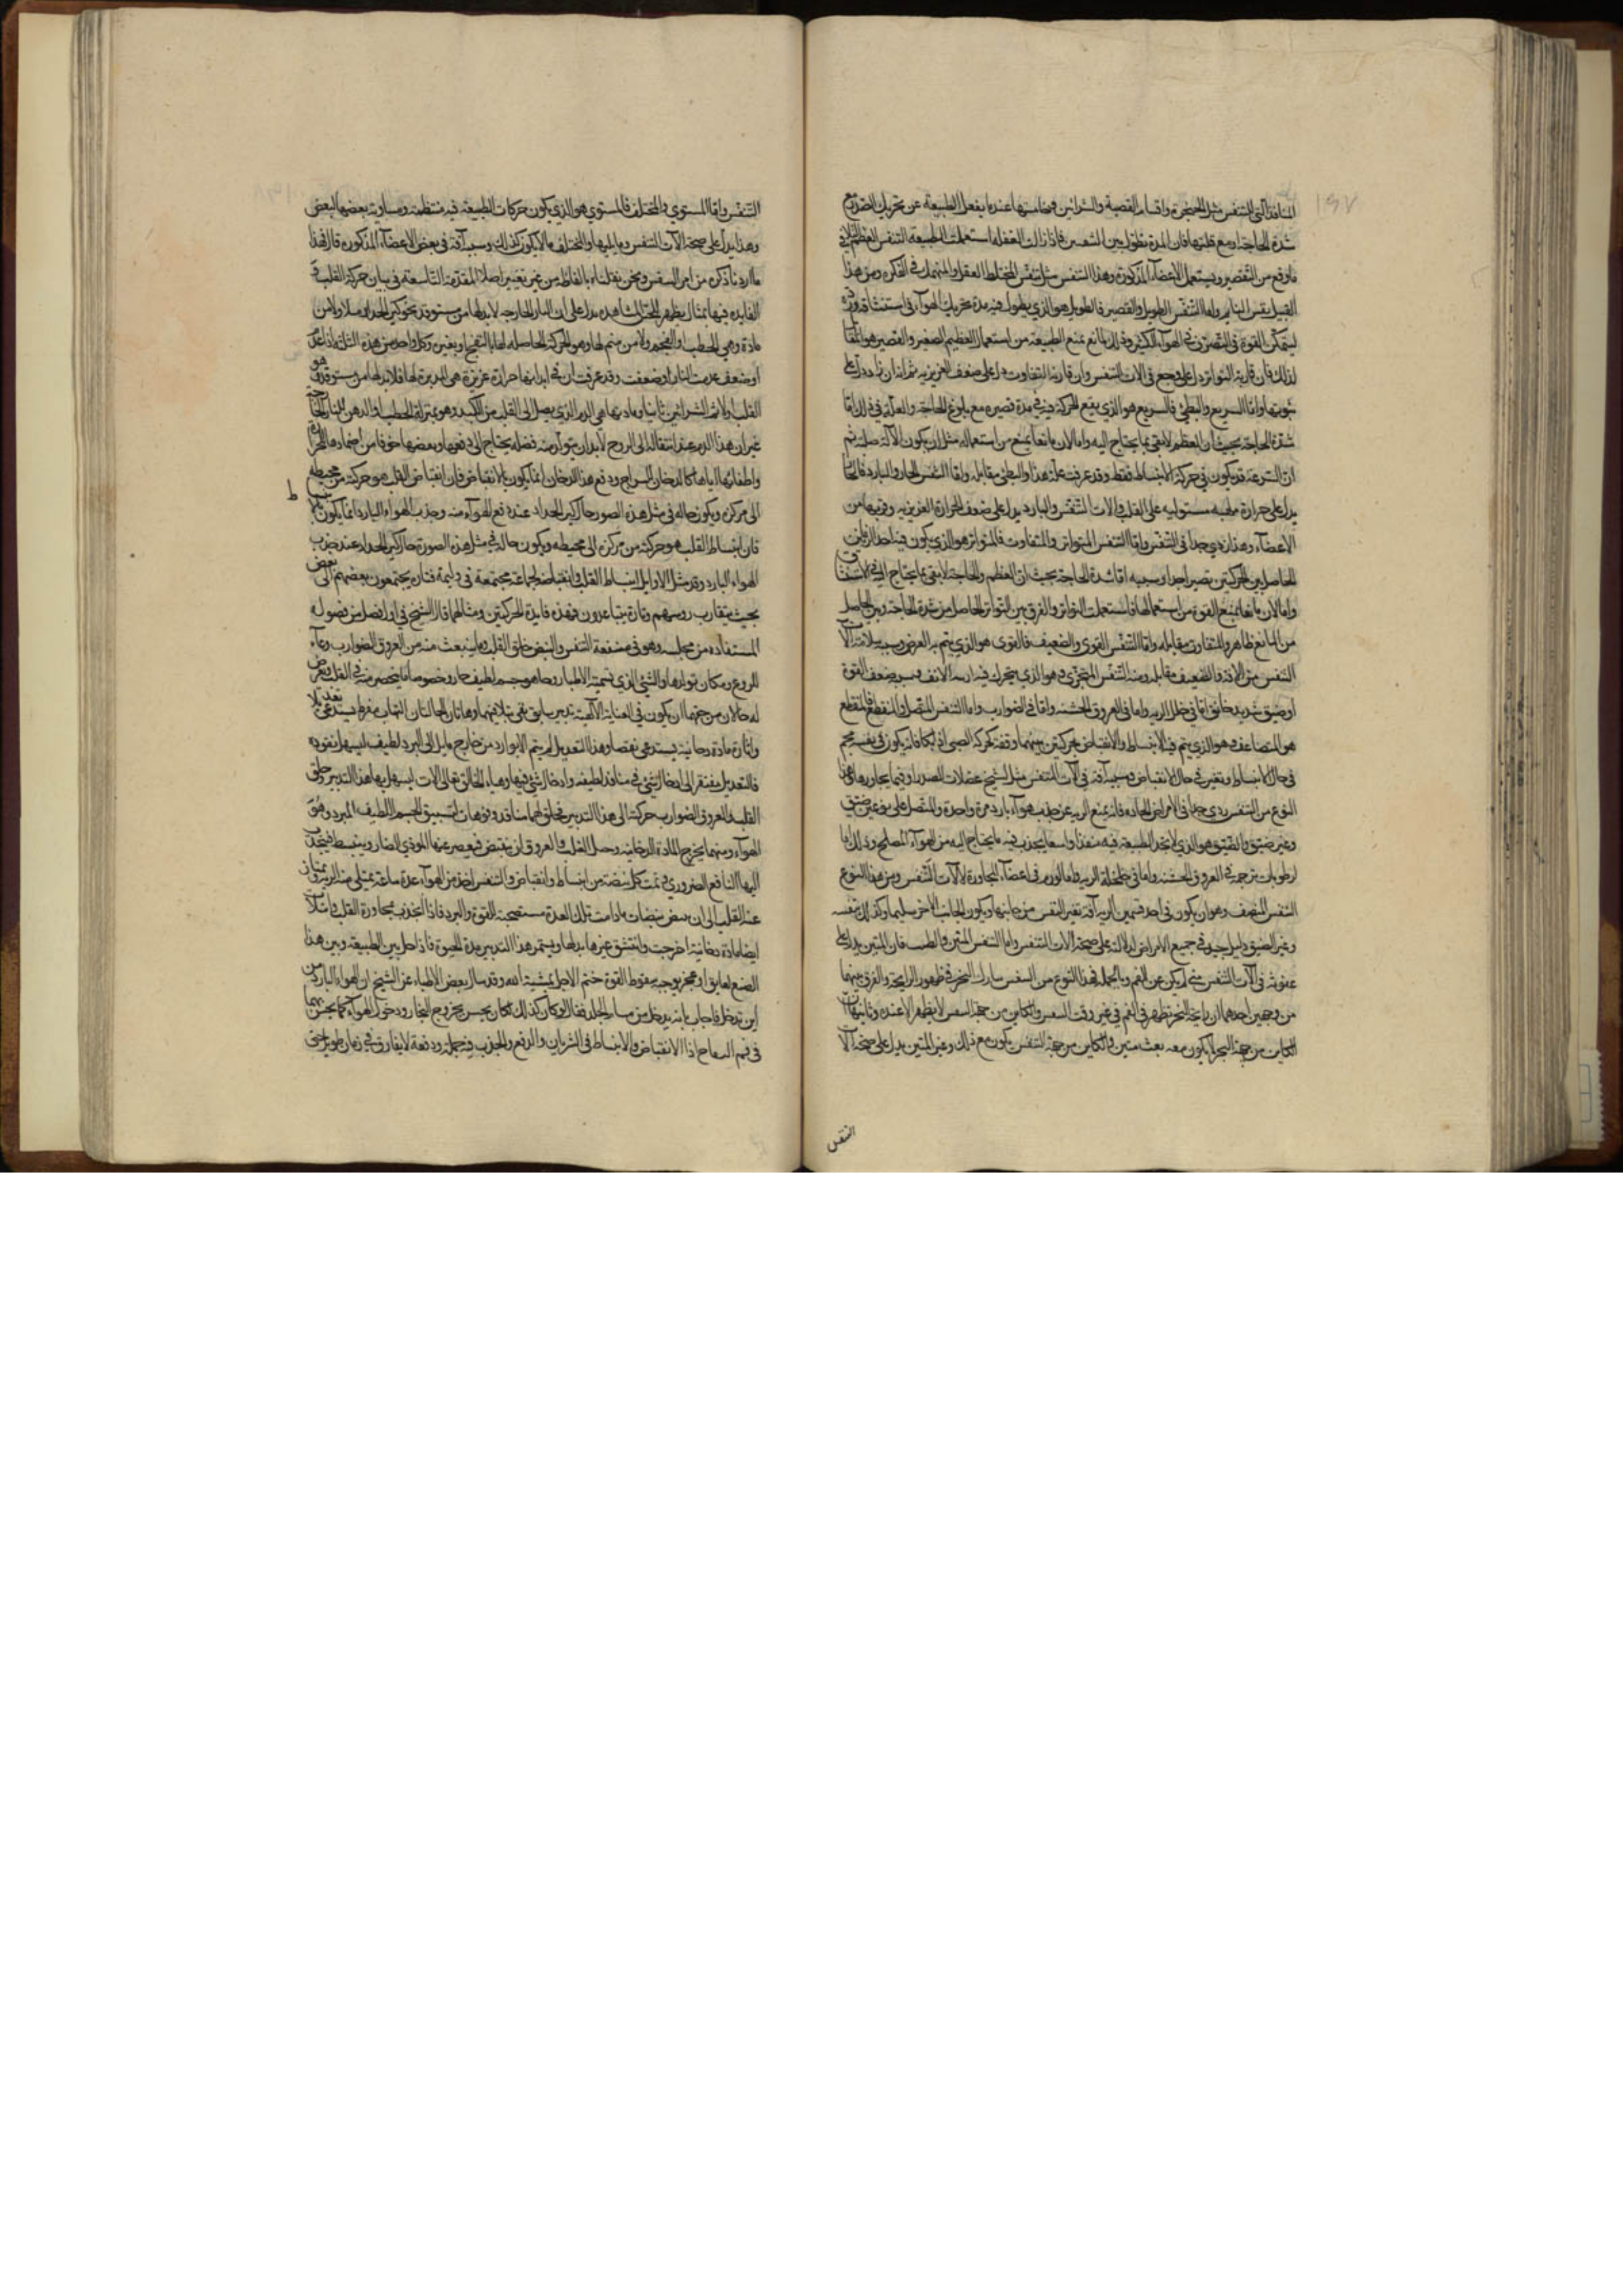 ١٩٧
المنافذ التي للتنفس مثل الحنجرة واقسام القصبة والشرائين وخامسها عندما يغفل الطبيعة عن تحريك الصدر مع
شدة الحاجة او مع قلتها فان المدة تطول بين النفسين فاذا زالت الغفلة استعملت الطبيعة التنفس العظيم
ما وقع من التقصير ويستعمل الاعضاء المذكورة وهذا التنفس مثل تنفس المختلط العقل والمنهمك في الفكر ومن هذا
القبيل تنفس النايم واما التنفس الطويل والقصير فالطويل هو الذي يطول فيه مدة تحريك الهواء في استنشاقه
ليتمكن القوة في التصرف في الهواء الكثير وذلك لمانع يمنع الطبيعة من استعمال العظيم الصغير والقصير هو
لذلك فان قارنه التواتر دل على وجع في آلات التنفس وان قارنه التفاوت دل على ضعف الغريزية
واما السريع والبطئ فالسريع هو الذي يقع الحركة فيه في مدة قصيرة مع بلوغ الحاجة والعلة في ذلك اما
شدة الحاجة بحيث ان العظم لا يفي بما يحتاج اليه واما لان مانعا يمنع من استعماله مثل ان يكون الآلة صلبة ثم
ان السرعة قد يكون في حركة الانبساط فقط وقد عرفت علة هذا والبطئ مقابله واما النفس الحار والبارد فالحار
يدل على حرارة ملتهبة مستولية على القلب والات التنفس والبارد يدل على ضعف الحرارة الغريزية وقربها من
الاعضاء وهذا ردي جدا في التنفس واما التنفس المتواتر والمتفاوت فالمتواتر هو الذي يكون فيه احد الزمانين
الحاصلين الحركتين قصيرا جدا وسببه اما شدة الحاجة بحيث ان العظم والحاجة لا يفي بما يحتاج اليه في الاستنشاق
واما لان مانعا يمنع القوة من استعمالها فاستعملت التواتر والفرق بين التواتر الحاصل من شدة الحاجة وبين الحاصل
من المانع ظاهر والمتفاوت مقابله واما التنفس القوى والضعيف فالقوى هو الذي يتم به الغرض وسببه سلامة آلات
التنفس من الآفة والضعيف مقابله ومنه التنفس المنخري وهو الذي يتحرك فيه ارنبة الانف وسببه ضعف القوة
او ضيق شديد خانق اما في خلل الرية واما في العروق الخشنة واما في الضوارب واما التنفس المتصل والمنقطع فالمنقطع
هو المتضاعف وهو الذي يتم فيه الانبساط والانقباض بحركتين بينهما وقفة كحركة الصبي اذا بكا فانه يكون في نفسه
في حال الانبساط وتغير في حال الانقباض وسببه آفة في آلات التنفس مثل تشنج عضلات الصدر او فيما يجاورها وهذا
النوع من التنفس ردي جدا في الامراض الحادة فانه يمنع الرية عن جذب هواء بارد مرة واحدة والمتصل على نوعين ضيق
وغير ضيق والضيق هو الذي لا يجد الطبيعة فيه منفذا واسعا يجذب فيه ما يحتاج اليه من الهواء المصلح وذلك اما
لرطوبات مزحمة في العروق الخشنة واما في خلخلة الرية واما لورم في اعضاء المجاورة لآلات التنفس ومن هذا النوع
التنفس المنصف وهو ان يكون في احد قسمي الرية آفة تغير النفس من جانبها ويكون الجانب الآخر سليما وكذلك تنفسه
وغير الضيق دليل جيد في جميع الامراض لدلالته على صحة آلات التنفس واما التنفس المنتن والطيب فان المنتن يدل على
عفونة في آلات التنفس متى لم يكن عن الفم وبالجملة فهذا النوع من النفس يشارك البخر في ظهور الرايحة والفرق بينهما
من وجهين احدهما ان رايحة البخر تظهر في الفم في غير وقت النفس والكاين من جهة النفس لا يظهر الا عنده وثانيهما ان
الكاين من جهة البخر لا يكون معه نفث منتن والكاين من جهة التنفس يكون مع ذلك وغير المنتن يدل على صحة آلات
التنفس
التنفس واما المستوي والمختلف فالمستوي هو الذي يكون حركات الطبيعة فيه منتظمة ومساوية بعضها لبعض
وهذا يدل على صحة آلات التنفس وما يليها والمختلف ما لا يكون كذلك وسببه آفة في بعض الاعضاء المذكورة قال فهذا
ما اردنا ذكره من امر التنفس ونحن نقلناه بالفاظه من غير تغيير اصلا المقدمة التاسعة في بيان حركة القلب
الفايدة فيها بمثال يظهر للحس المشاهدة يدل على ان النار الخارجة لا بد لها من مستوقد نحو كير الحداد مثلا ولا من
مادة وهي الحطب والفحم ولا من متمم لها وهو الحركة الحاصلة لها بالنفخ او بغيره وكل واحد من هذه الثلثة اذا عدم
او ضعف عدمت النار او ضعفت وقد عرفت ان في ابداننا حرارة غريزية هي المدبرة لها فلا بد لها من مستوقد وهو
القلب اولا ثم الشرائين ثانيا ومادتها هي الدم الذي يصل الى القلب من الكبد وهو بمنزلة الحطب او الدهن للنار الخارجة
غير ان هذا الدم عند انتقاله الى الروح لا بد ان يتولد منه فضلة يحتاج الى دفعها وبعضها خوفا من اخمادها للحرارة
واطفائها اياها كالدخان للسراج ودفع هذا الدخان انما يكون بالانقباض فان انقباض القلب هو حركته من محيطه
الى مركزه ويكون حاله في مثل هذه الصور حال كير الحداد عند دفع الهواء منه وجذب الهواء البارد انما يكون بالانبساط
فان انبساط القلب هو حركته من مركزه الى محيطه ويكون حاله في مثل هذه الصورة حال كير الحداد عند جذب
الهواء البارد وقد مثل الاوايل انبساط القلب وانقباضه بجماعة مجتمعة في وليمة فتارة يجتمعون بعضهم الى بعض
بحيث يتقارب روسهم وتارة يتباعدون فهذه فايدة الحركتين ومثالهما قال الشيخ في اول فصل من فصوله
المستفادة من مجلسه وهو في منفعة التنفس والنبض خلق القلب وما ينبعث منه من العروق الضوارب وعاء
للروح ومكان تولدها والشئ الذي تسميه الاطباء روحا هو جسم لطيف حار وخصوصا ما ينحصر منه في القلب ويعرض
له حالان من جهتهما ان يكون في العناية الالهية تدبير سابق يفي بتلافيهما وهاتان الحالتان التهاب مفرط يستدعي تعديلا
واثارة مادة دخانية يستدعي نفضا وهذا التعديل لم يتم الا بوارد من خارج مايل الى البرد لطيف ليسهل نفوذه
فالتعديل يفتقر الى ادخال شئ في منافذ لطيفة وادخال شئ فيها وهيا الخالق تعالى آلات ليسهل بها هذا التدبير خلق
القلب والعروق الضوارب حركة الى هذا التدبير فخلق لهما منافذ وفوهات لتسبيق الجسم اللطيف المبرد وهو
الهواء ومنهما يخرج المادة الدخانية وجعل القلب والعروق ان ينقبض فيعصر عنها الموذي الضار وينبسط فيجذب
اليها النافع الضروري فتمت كل نبضة من انبساط وانقباض والتنفس اخذ من الهواء عدة ساعة يمتلي منه الرية
عنه القلب الى ان نبض نبضات ما دامت تلك العدة مستصحبة للقوة والبرد فاذا انجذب مجاورة القلب
ايضا مادة دخانية اخرجت وانتشق غيرها بدلها ويستمر هذا التدبير مدة الحيوة فاذا حل بين الطبيعة وبين هذا
الصنع لعايق او عجز يوجبه سقوط القوة ختم الاجل بمشية الله وقد سال بعض الاطباء عن الشيخ ان الهواء البارد من
اين تدخل فاجاب بانه يدخل من مسام الجلد فقال لو كان كذلك لكان يحس بخروج البخار ودخول الهواء كما يحس بهما
في فم النفاخ اذا الانقباض والانبساط في الشريان والدفع والجذب فيه جملة ودفعة لا يفارق في زمان طويل حتى